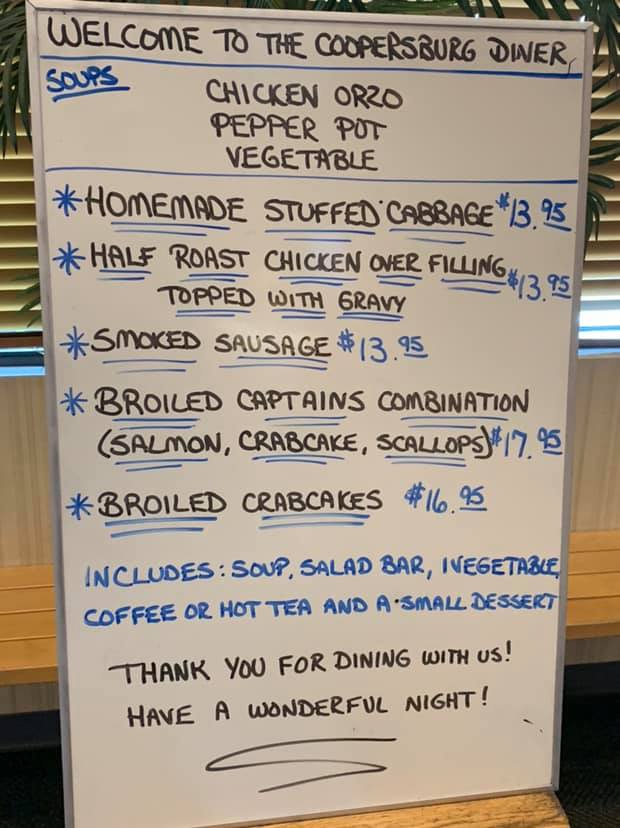 WELCOME TO THE COOPERSBURG DINER
SOUPS
CHICKEN ORZO
PEPPER POT
VEGETABLE
* HOMEMADE STUFFED CABBAGE $13.95
* HALF ROAST CHICKEN OVER FILLING $13.95
TOPPED WITH GRAVY
* SMOKED SAUSAGE $13.95
* BROILED CAPTAINS COMBINATION
(SALMON, CRABCAKE, SCALLOPS) $17.95
* BROILED CRABCAKES $16.95
INCLUDES: SOUP, SALAD BAR, 1 VEGETABLE,
COFFEE OR HOT TEA AND A SMALL DESSERT
THANK YOU FOR DINING WITH US!
HAVE A WONDERFUL NIGHT!